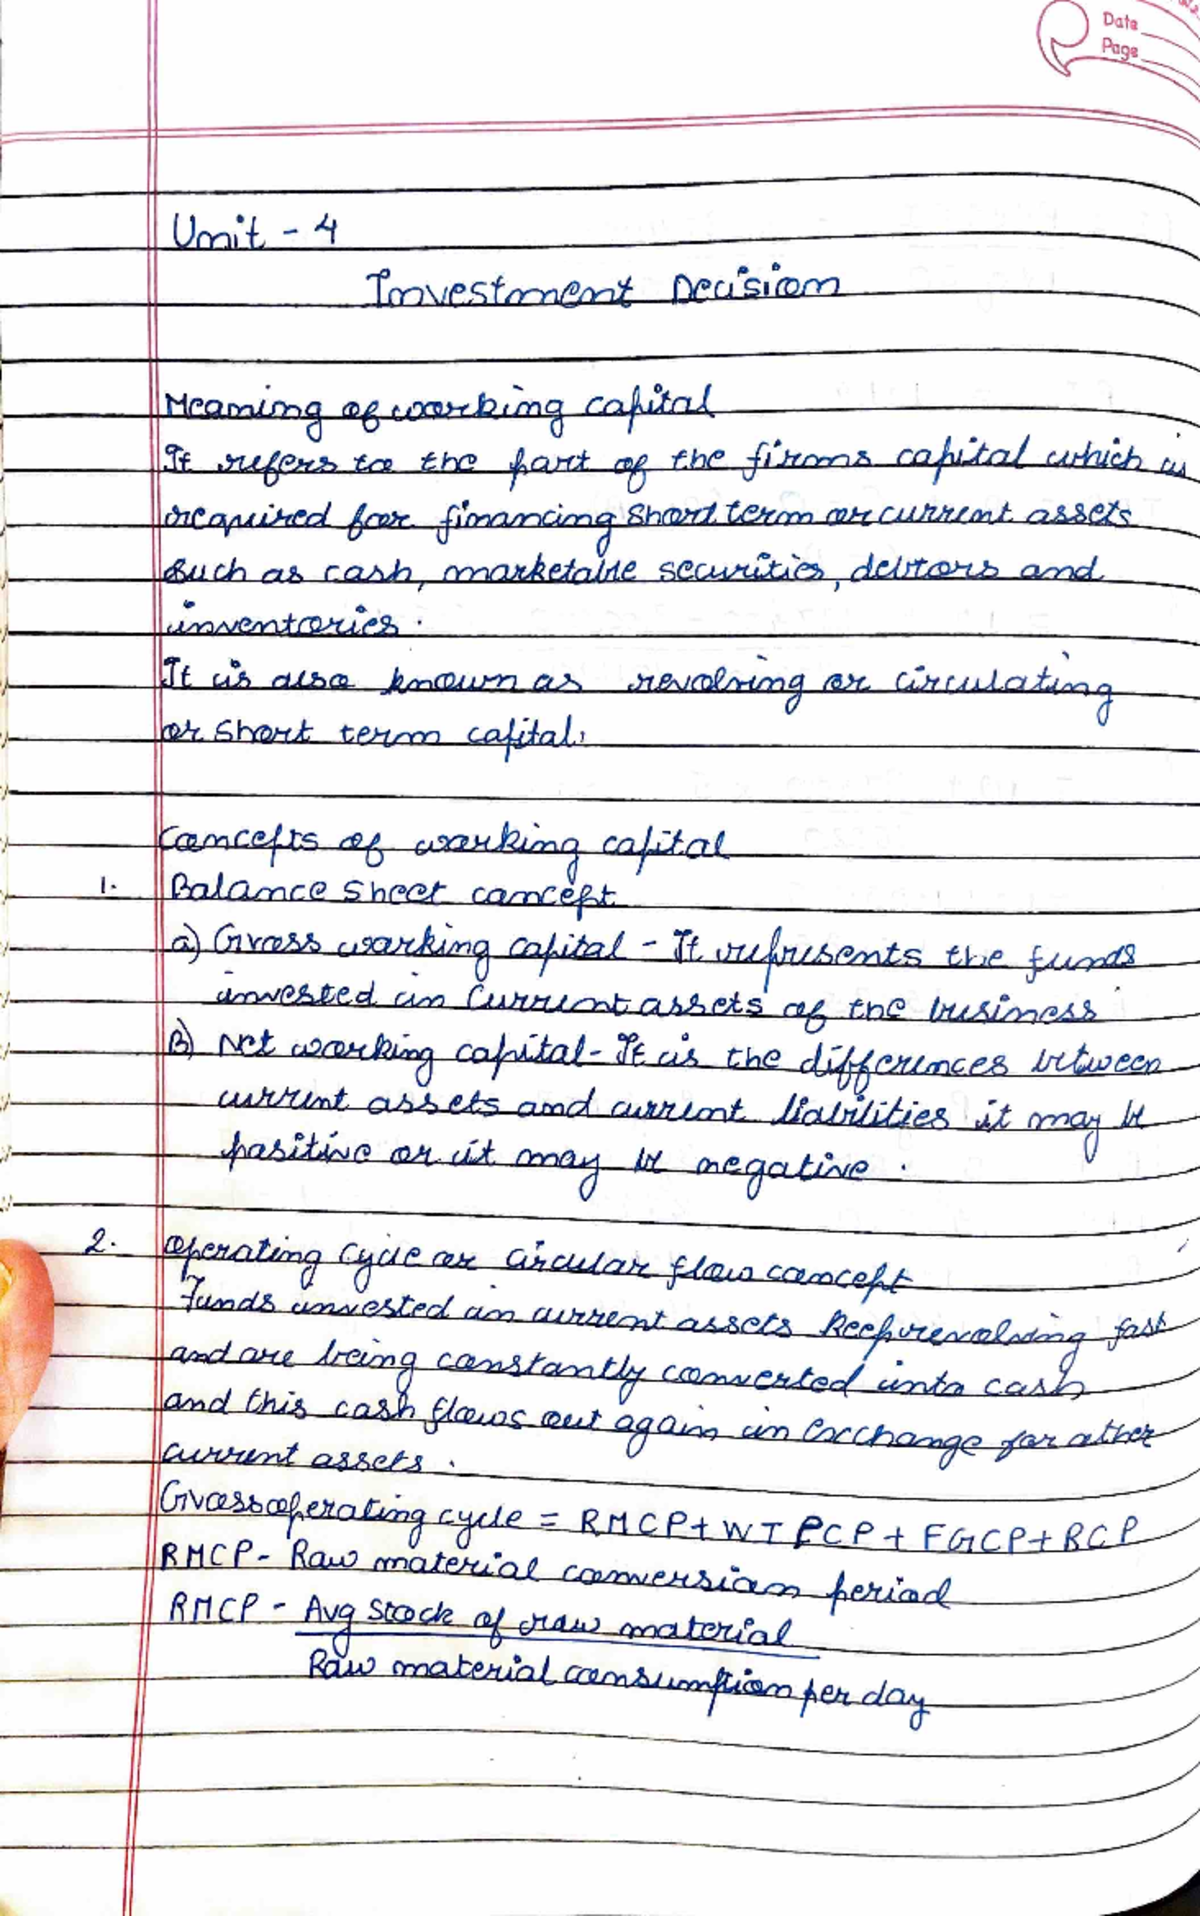 Date
Page
Unit - 4
Investment Decision
Meaning of working capital
It refers to the part of the firms capital which is
required for financing short term or current assets
such as cash, marketable securities, debtors and
inventories.
It is also known as revolving or circulating
or short term capital.
Concepts of working capital
1. Balance sheet concept
a) Gross working capital - It represents the funds
invested in current assets of the business
B) Net working capital - It is the differences between
current assets and current liabilities it may be
positive or it may be negative.
2. Operating cycle or circular flow concept
Funds invested in current assets keep revolving fast
and are being constantly converted into cash
and this cash flows out again in exchange for other
current assets.
Gross operating cycle = RMCP + WIPCP + FGCP + RCP
RMCP - Raw material conversion period
RMCP - Avg stock of raw material
Raw material consumption per day